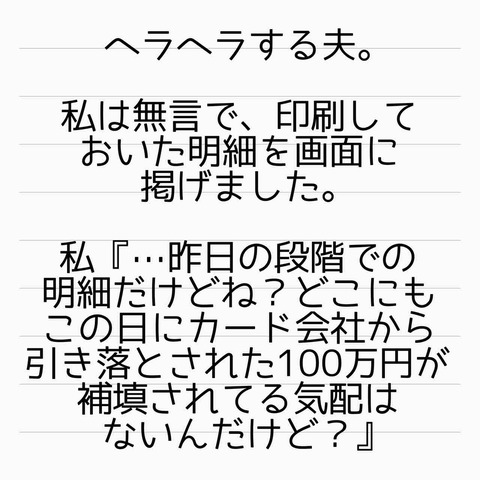 ヘラヘラする夫。
私は無言で、印刷して
おいた明細を画面に
掲げました。
私『…昨日の段階での
明細だけどね？どこにも
この日にカード会社から
引き落とされた100万円が
補填されてる気配は
ないんだけど？』